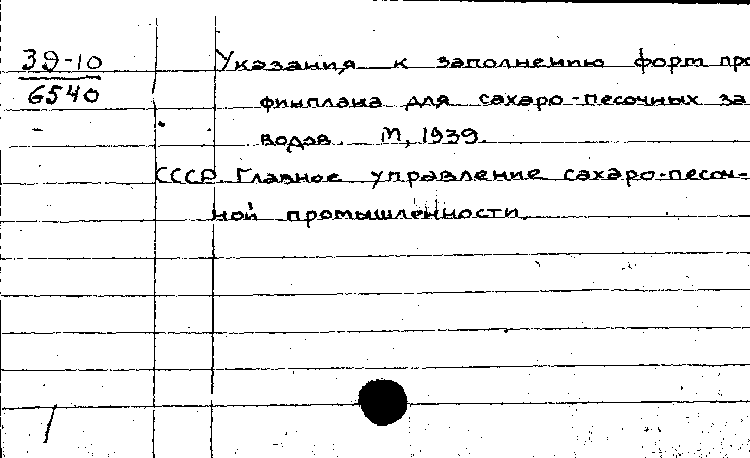 39-10
6540
Указания к заполнению форм про
финплана для сахаро-песочных за
водов. М, 1939.
СССР. Главное управление сахаро-песоч-
ной промышленности.